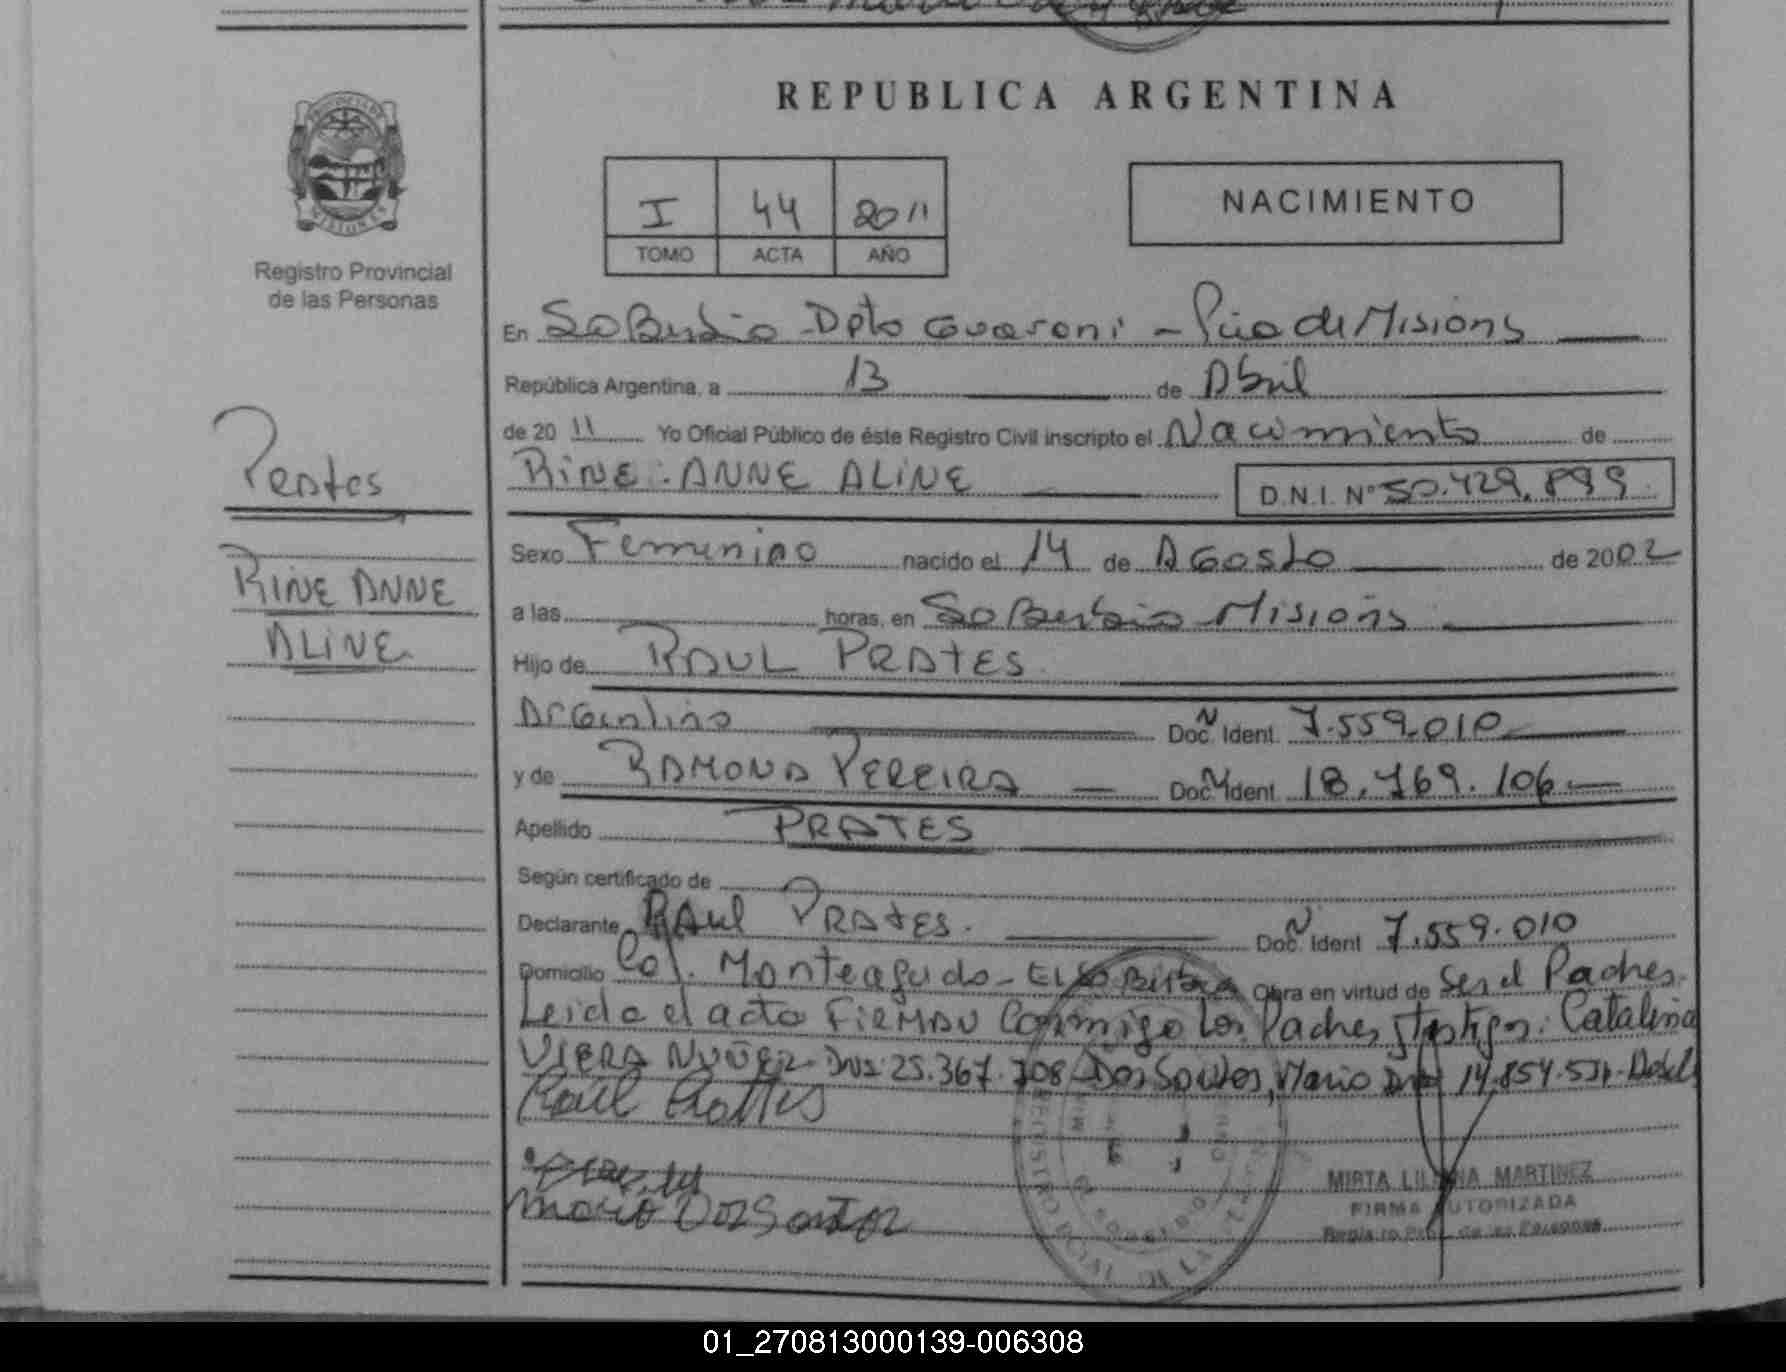 REPUBLICA ARGENTINA
PROVINCIA DE
MISIONES
Registro Provincial
de las Personas
I 44 2011
TOMO ACTA AÑO
NACIMIENTO
En Dpto Guarani - Pcia de Misions
República Argentina, a 13 de Abril
de 20 11 Yo Oficial Público de éste Registro Civil inscripto el Nacimiento de
RINE: ANNE ALINE D.N.I. Nº 50.429.899
Prates
RINE ANNE
ALINE
Sexo Femenino nacido el 14 de AGosto de 2002
a las horas, en Misions
Hijo de RAUL PRATES
ArGentino Doc. Ident. 7.559.010
y de RAMONA PEREIRA Doc. Ident. 18.769.106
Apellido PRATES
Según certificado de
Declarante RAul PRAtES. Doc. Ident. 7.559.010
Domicilio Col. Monteagudo - El Obra en virtud de Ser el Padres.
Leida el acta FIRMAN Conmigo los Padres y testigos: Catalina
VIERA NUÑEZ Dni 25.367.708 Dos Santos, Mario Dni 14.854.531.
Raul Prattes
Mario Dos Santos
MIRTA LILIANA MARTINEZ
FIRMA AUTORIZADA
Registro Prov. de las Personas
01_270813000139-006308